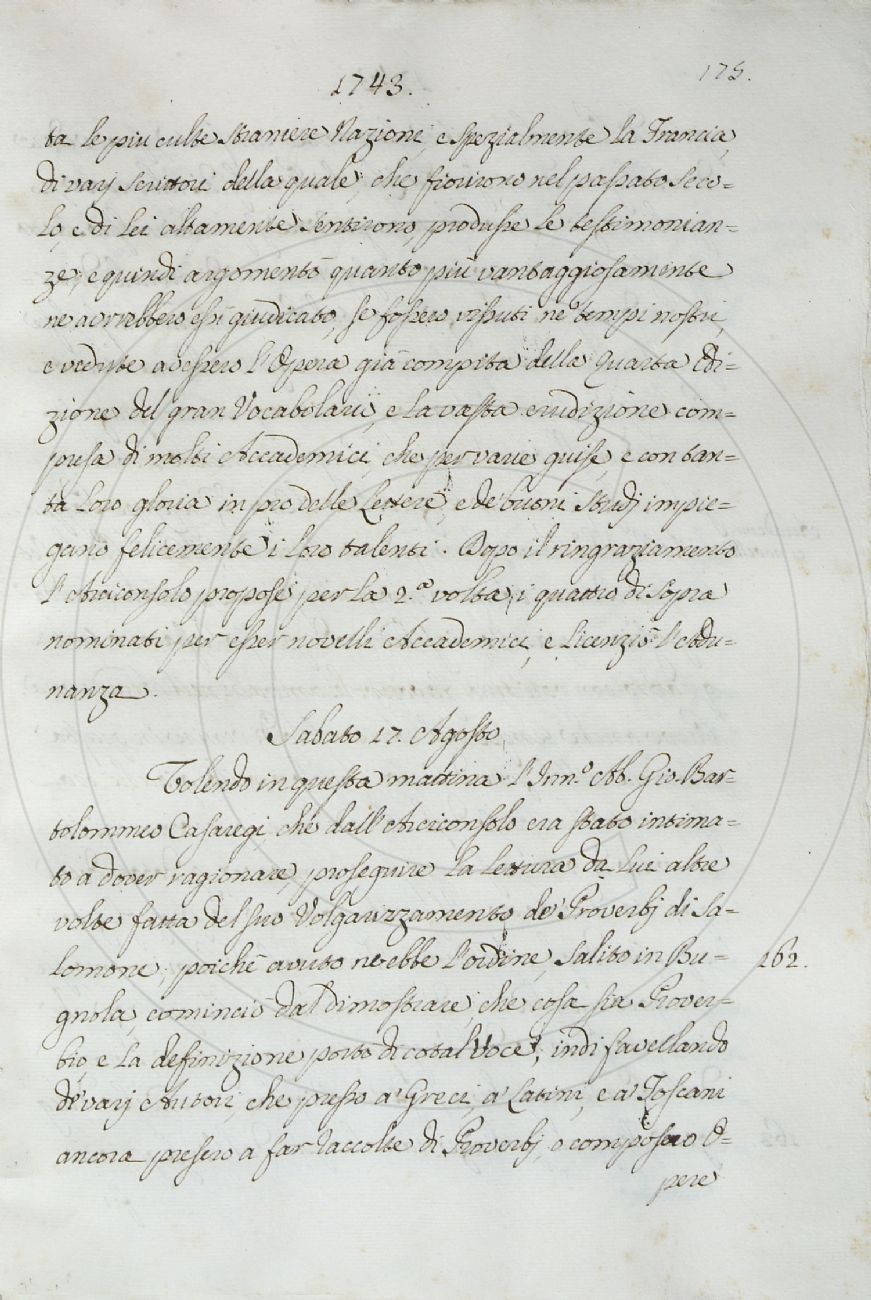 1743.
175.
ta le più culte straniere Nazioni, e spezialmente la Francia,
di varj scrittori della quale, che fiorirono nel passato seco=
lo, e di lei altamente sentirono, produsse le testimonian=
ze; e quindi argomentò quanto più vantaggiosamente
ne avrebbero essi giudicato, se fossero vissuti ne' tempi nostri,
e vedute avessero l'Opera già compita della Quarta Edi=
zione del gran Vocabolario, e la vasta erudizione com=
presa di molti Accademici, che per varie guise, e con tan=
ta loro gloria in pro delle Lettere, e de' buoni studj impie=
gano felicemente i loro talenti. Dopo il ringraziamento
l'Arciconsolo propose per la 2.ª volta i quattro di sopra
nominati per esser novelli Accademici, e licenziò l'Adu=
nanza.
Sabato 17. Agosto.
Volendo in questa mattina l'Inn.º Ab. Gio. Bar=
tolommeo Casaregi, che dall'Arciconsolo era stato intima=
to a dover ragionare, proseguire la lettura da lui altre
volte fatta del suo Volgarizzamento de' Proverbj di Sa=
lomone; poichè avuto ne ebbe l'ordine, salito in Bu=
162.
gnola, cominciò dal dimostrare, che cosa sia Prover=
bio, e la definizione portò di cotal Voce; indi favellando
de' varj Autori, che presso a' Greci, a' Latini, e a' Toscani
ancora presero a far raccolte di Proverbj, o composero O=
pere